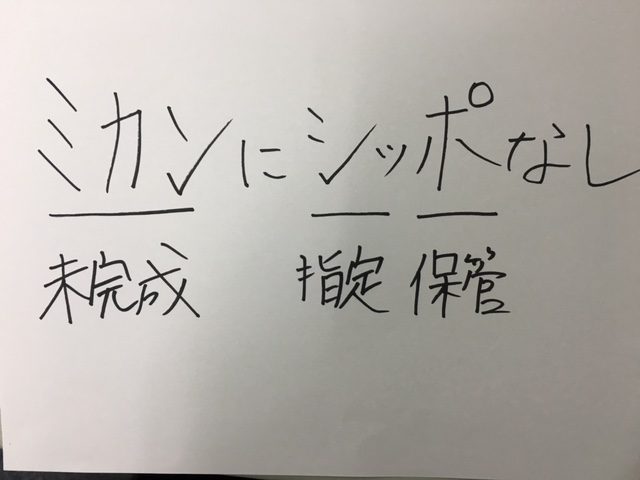 ミカンにシッポなし
未完成 指定 保管